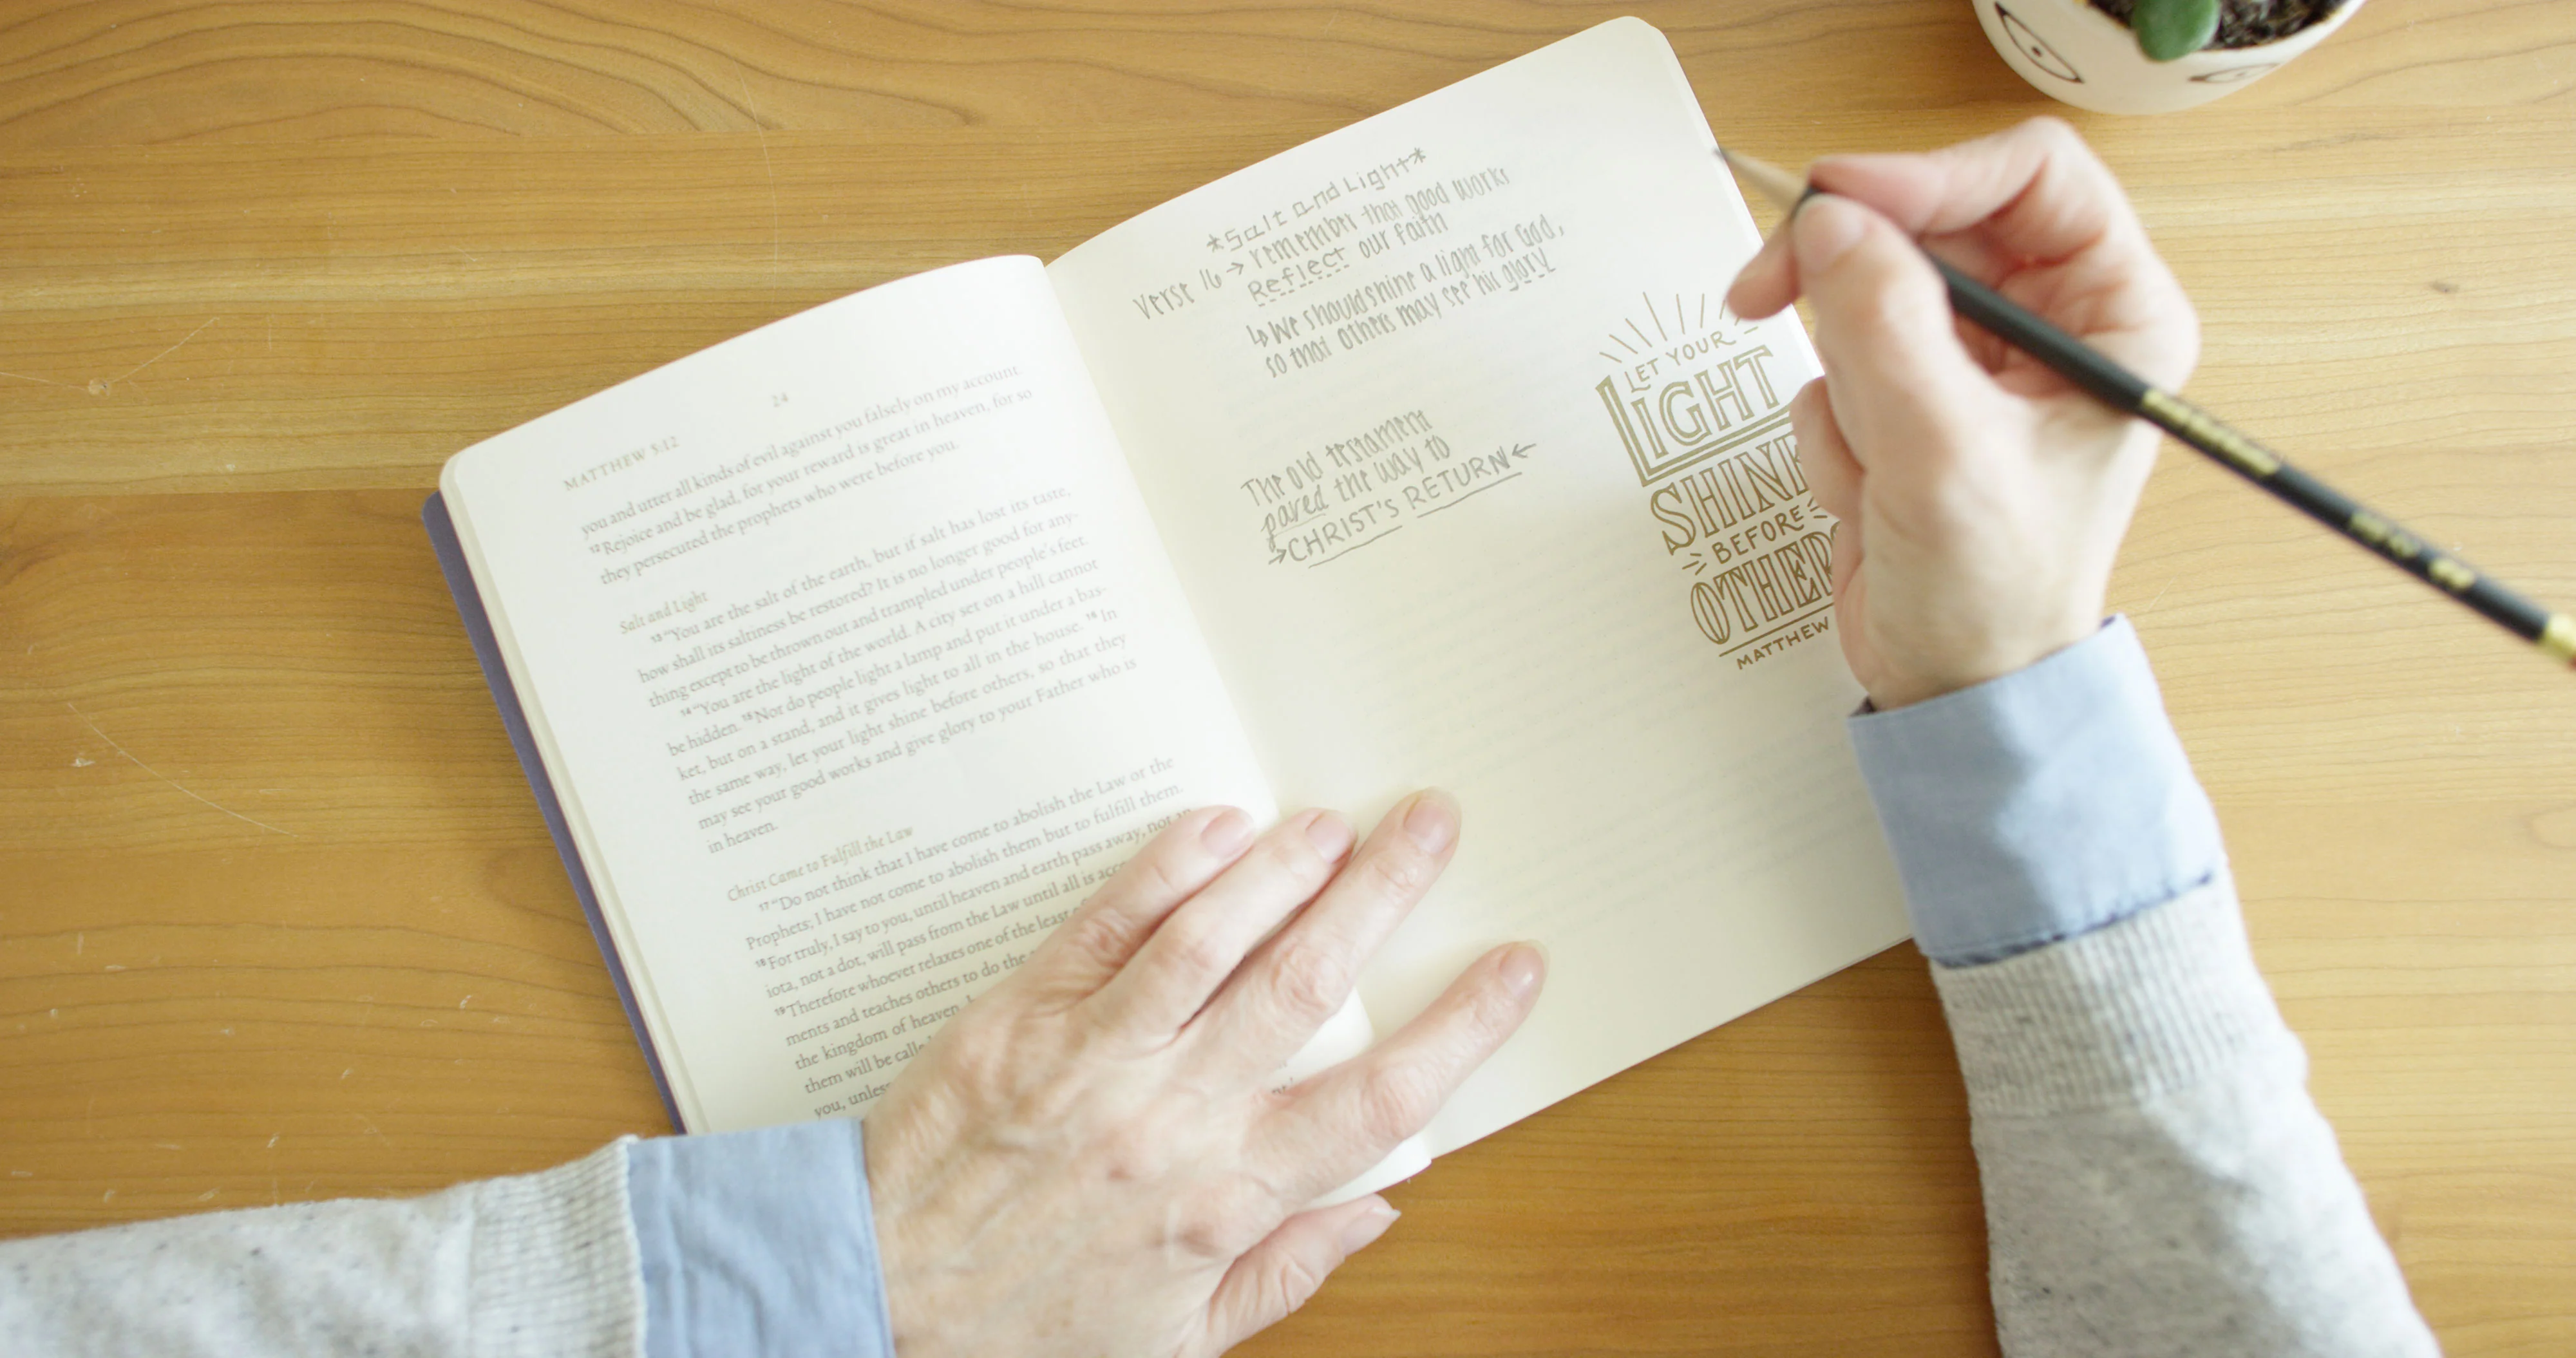 MATTHEW 5:12
24
you and utter all kinds of evil against you falsely on my account.
12 Rejoice and be glad, for your reward is great in heaven, for so
they persecuted the prophets who were before you.
Salt and Light
13 “You are the salt of the earth, but if salt has lost its taste,
how shall its saltiness be restored? It is no longer good for any-
thing except to be thrown out and trampled under people's feet.
14 “You are the light of the world. A city set on a hill cannot
be hidden. 15 Nor do people light a lamp and put it under a bas-
ket, but on a stand, and it gives light to all in the house. 16 In
the same way, let your light shine before others, so that they
may see your good works and give glory to your Father who is
in heaven.
Christ Came to Fulfill the Law
17 “Do not think that I have come to abolish the Law or the
Prophets; I have not come to abolish them but to fulfill them.
18 For truly, I say to you, until heaven and earth pass away, not an
iota, not a dot, will pass from the Law until all is
19 Therefore whoever relaxes one of the least
ments and teaches others to do the
the kingdom of heaven,
them will be
you,
*Salt and Light*
Verse 16 → remember that good works
Reflect our faith
↳ We should shine a light for God,
so that others may see his glory.
The old testament
paved the way to
→CHRIST'S RETURN←
LET YOUR
LIGHT
SHINE
BEFORE
OTHERS
MATTHEW